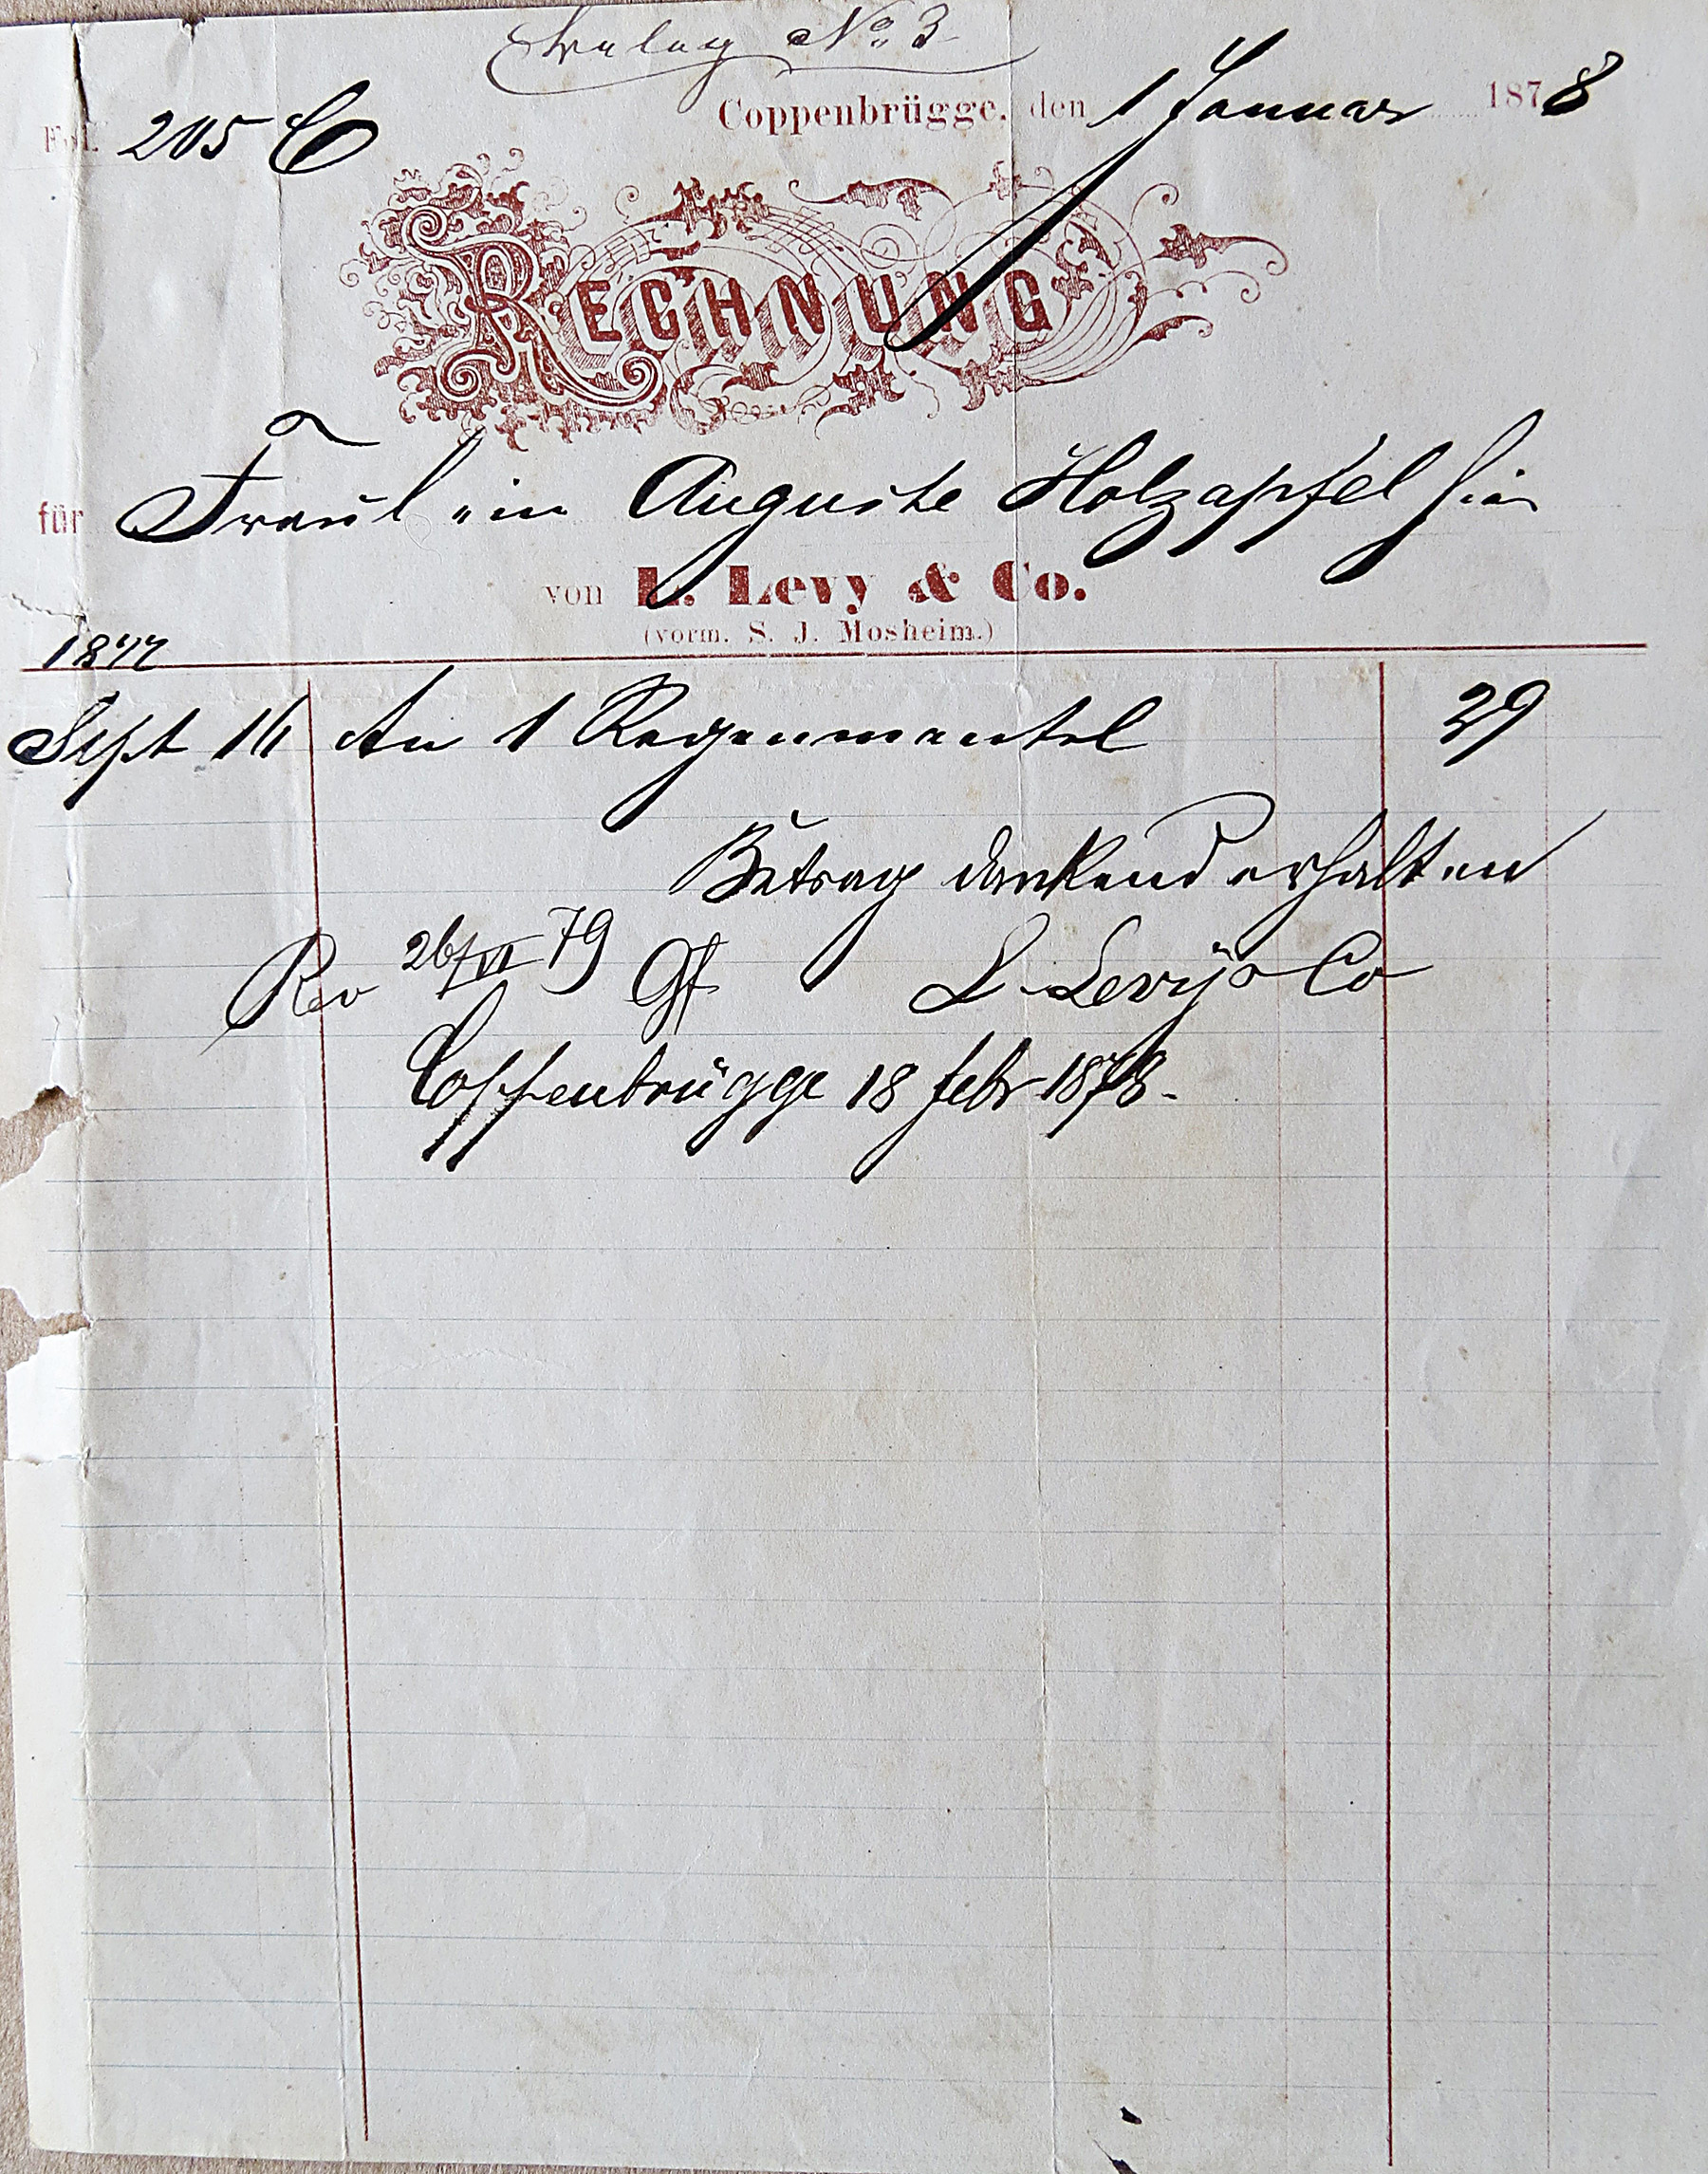 Anlag No. 3
Coppenbrügge, den 1 Januar 1878
Fol. 205 C
RECHNUNG
für Fräulein Auguste Holzapfel hier
von L. Levy & Co.
(vorm. S. J. Mosheim.)
1877
Sept 16 An 1 Regenmantel 29
Betrag dankend erhalten
26/VI 79 L. Levy & Co
Coppenbrügge 18 febr 1878.